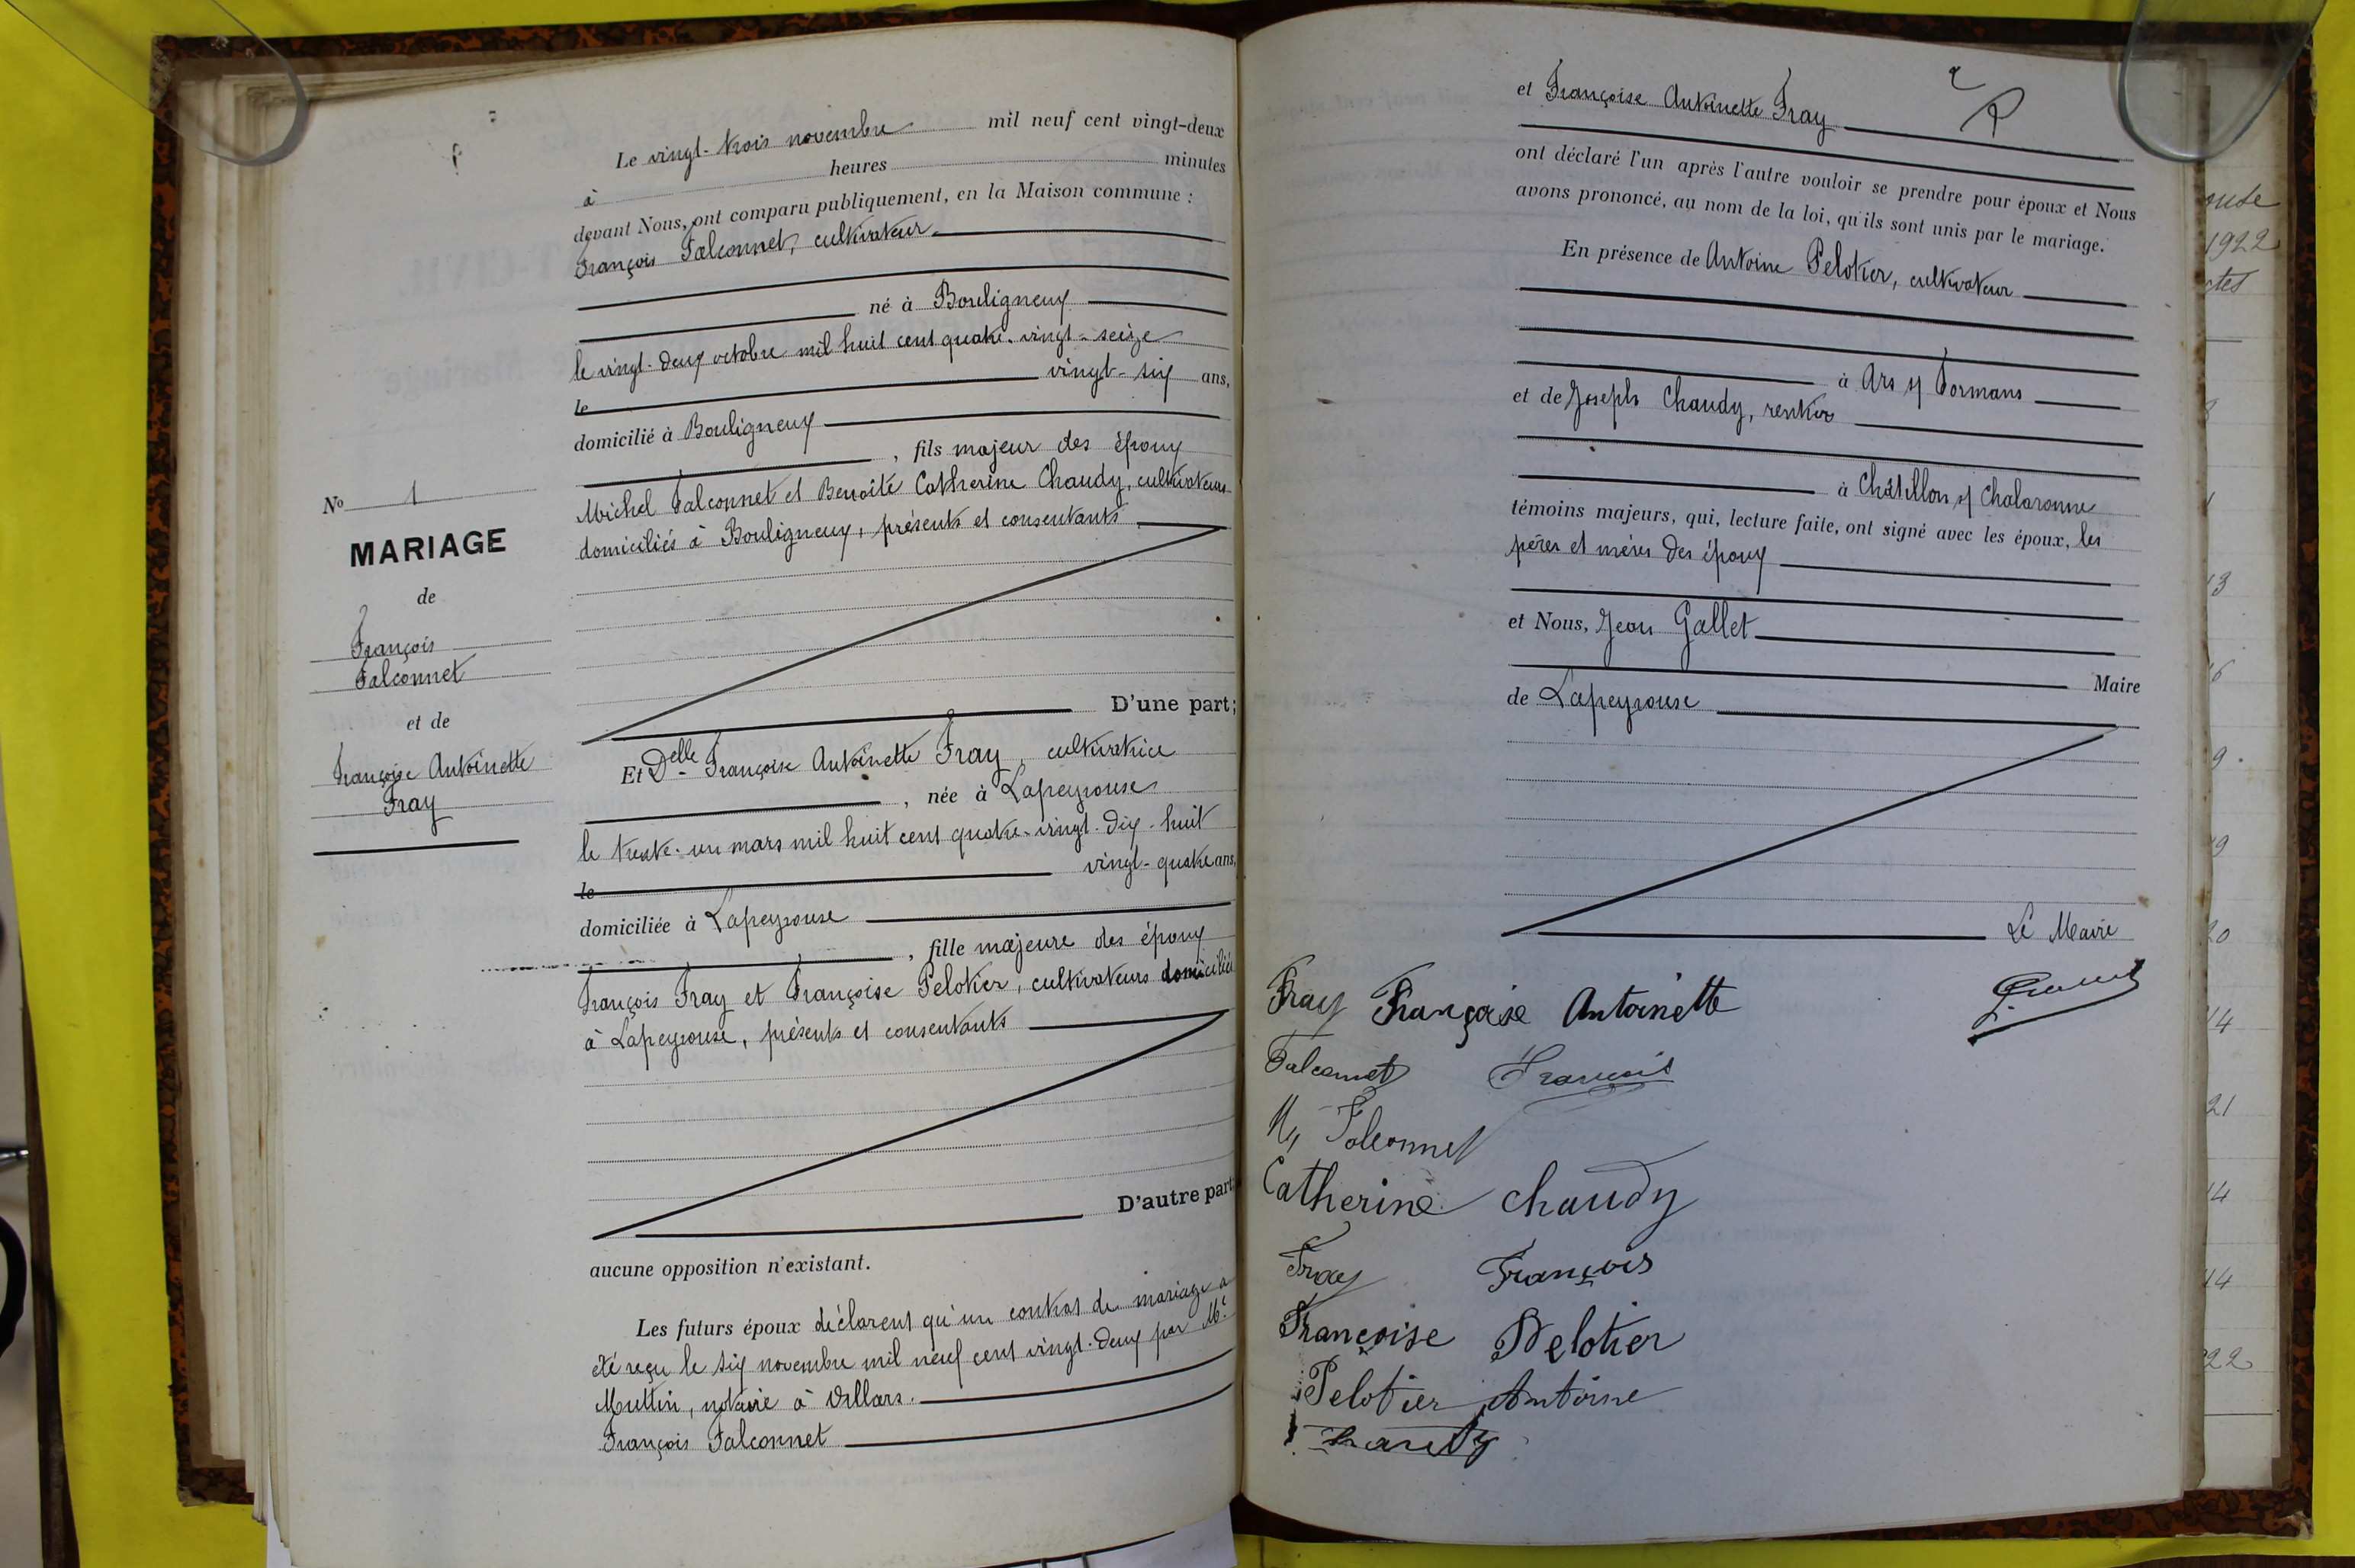 Le vingt-trois novembre mil neuf cent vingt-deux
à heures minutes
devant Nous, ont comparu publiquement, en la Maison commune :
François Falconnet, cultivateur
né à Bouligneux
le vingt-deux octobre mil huit cent quatre-vingt-seize
le vingt-six ans,
domicilié à Bouligneux
, fils majeur des époux
Michel Falconnet et Benoîte Catherine Chaudy, cultivateurs
domiciliés à Bouligneux, présents et consentants
D'une part;
Et Delle Françoise Antoinette Fray, cultivatrice
, née à Lapeyrouse
le trente-un mars mil huit cent quatre-vingt-dix-huit
le vingt-quatre ans,
domiciliée à Lapeyrouse
, fille majeure des époux
François Fray et Françoise Pelotier, cultivateurs domiciliés
à Lapeyrouse, présents et consentants
D'autre part;
aucune opposition n'existant.
Les futurs époux déclarent qu'un contrat de mariage a
été reçu le six novembre mil neuf cent vingt-deux par Me
Muttin, notaire à Villars.
François Falconnet
No 1
MARIAGE
de
François
Falconnet
et de
Françoise Antoinette
Fray
et Françoise Antoinette Fray
ont déclaré l'un après l'autre vouloir se prendre pour époux et Nous
avons prononcé, au nom de la loi, qu'ils sont unis par le mariage.
En présence de Antoine Pelotier, cultivateur
à Ars s/ Formans
et de Joseph Chaudy, rentier
à Châtillon s/ Chalaronne
témoins majeurs, qui, lecture faite, ont signé avec les époux, les
pères et mères des époux
et Nous, Jean Gallet
Maire
de Lapeyrouse
Le Maire
Fray Françoise Antoinette
Falconnet François
M Falconnet
Catherine Chaudy
Fray François
Françoise Pelotier
Pelotier Antoine
Chaudy
1922
13
9
19
20
14
21
14
14
22